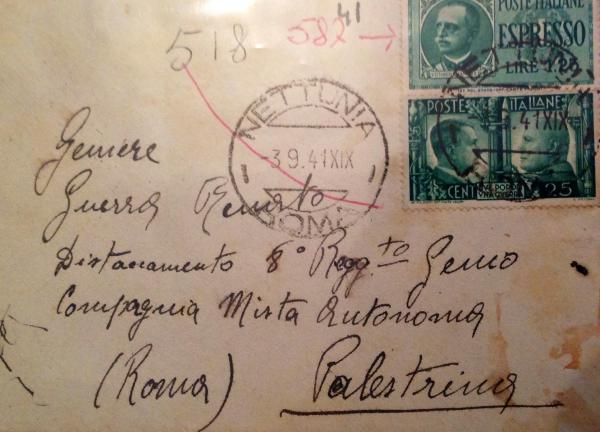 41
518 582 →
POSTE ITALIANE
ESPRESSO
LIRE 1,25
POSTE ITALIANE
CENT 25
NETTUNIA
-3.9.41 XIX
ROMA
9.41 XIX
Geniere
Guerra Renato
Distaccamento 8° Regg.to Genio
Compagnia Mista Autonoma
(Roma) Palestrina